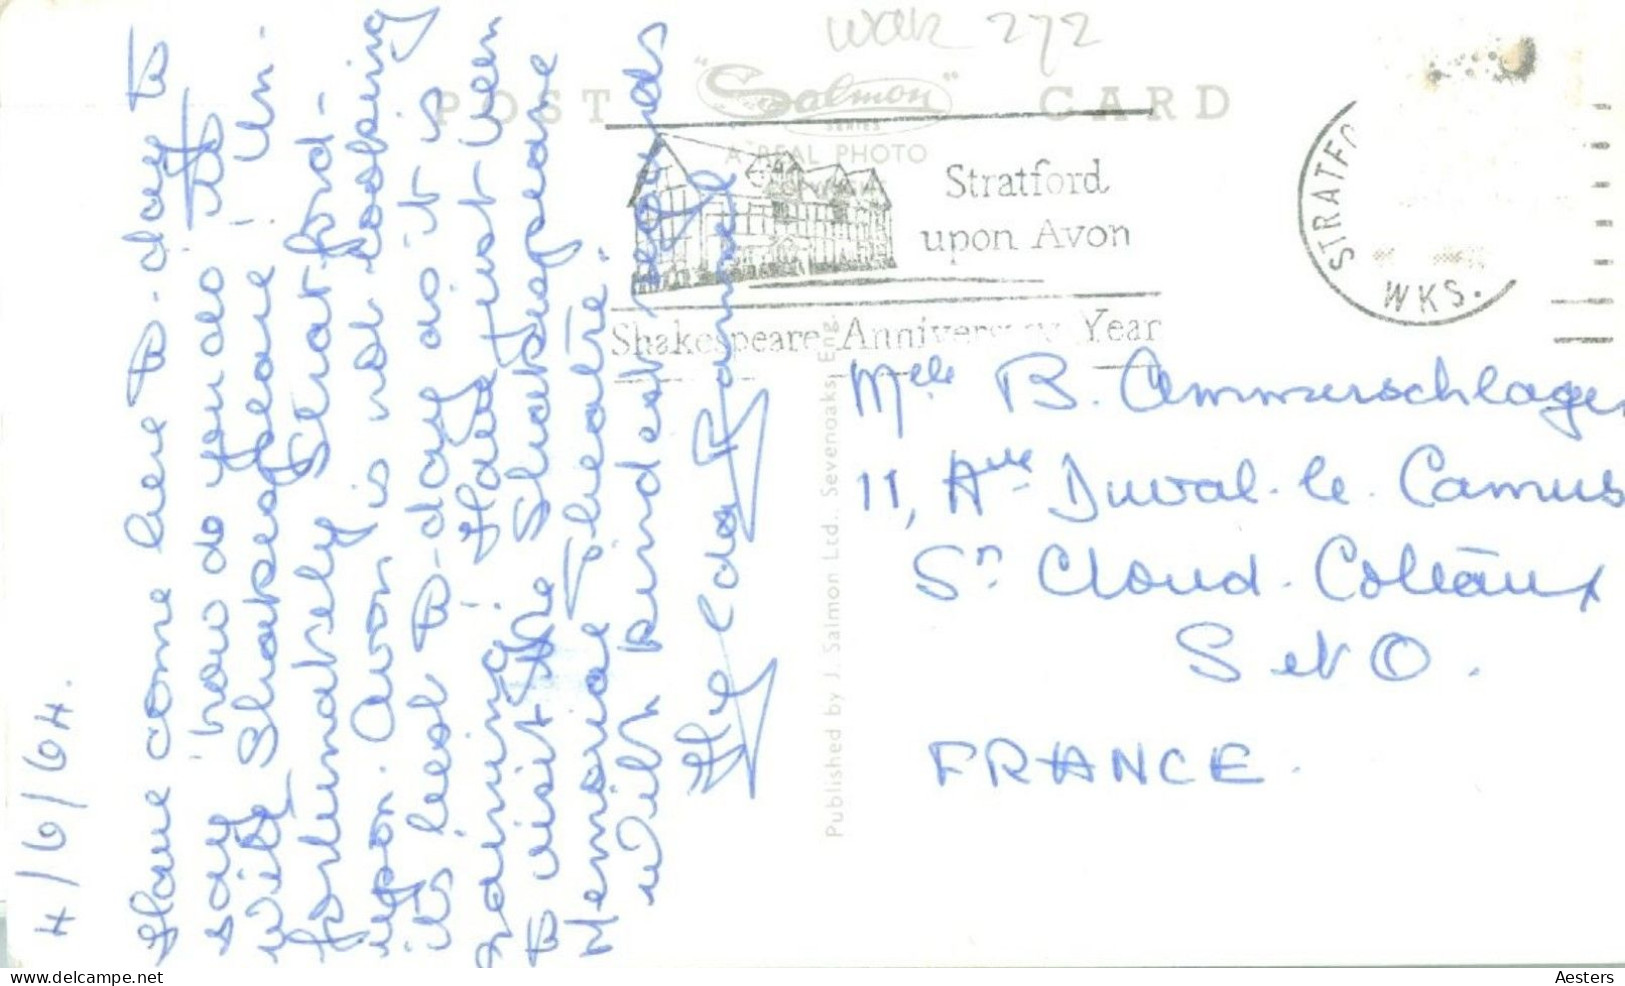 wak 272
POST CARD
"Salmon"
SERIES
A REAL PHOTO
Stratford
upon Avon
Shakespeare Anniversary Year
STRATFO
WKS.
4/6/64.
Have come here to-day to
say 'how do you do' to
Will Shakespeare! Un-
fortunately Stratford-
upon-Avon is not looking
its best to-day as it is
raining! Have just been
to visit the Shakespeare
Memorial Theatre.
With kindest regards
Published by J. Salmon Ltd., Sevenoaks, Eng.
Melle B. Ammerschlager
11, Ave Duval-le-Camus
St Cloud-Coteaux
S et O.
FRANCE.
www.delcampe.net
Aesters